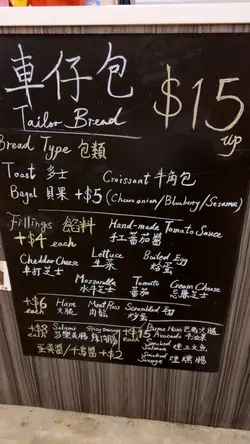 車仔包 $15
Tailor Bread up
Bread Type 包類
Toast 多士 Croissant 牛角包
Bagel 貝果 +$5 (Cheese onion/Blueberry/Sesame)
Fillings 餡料 Hand-made Tomato Sauce
+$4 each 手工蕃茄醬
Cheddar Cheese Lettuce Boiled Egg
車打芝士 生菜 烚蛋
Mozzarella Tomato Cream Cheese
水牛芝士 蕃茄 忌廉芝士
+$6 each Ham Meat Floss Scrambled Egg
火腿 肉鬆 炒蛋
+$8 each Salami Parma Ham 巴馬火腿
莎樂美腸 Avocado 牛油果
Smoked Salmon 煙三文魚
+$2 Smoked Sausage 煙燻腸